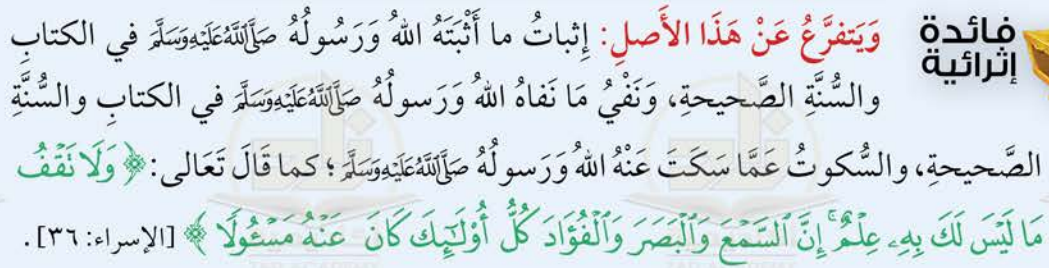 فائدة إثرائية
وَيَتفرَّعُ عَنْ هَذَا الأَصلِ: إِثباتُ ما أَثْبَتَهُ اللهُ وَرَسُولُهُ صَلَّى اللَّهُ عَلَيْهِ وَسَلَّمَ في الكتابِ
والسُّنَّةِ الصَّحيحةِ، وَنَفْيُ مَا نَفاهُ اللهُ وَرَسولُهُ صَلَّى اللَّهُ عَلَيْهِ وَسَلَّمَ في الكتابِ والسُّنَّةِ
الصَّحيحةِ، والسُّكوتُ عَمَّا سَكَتَ عَنْهُ اللهُ وَرَسولُهُ صَلَّى اللَّهُ عَلَيْهِ وَسَلَّمَ؛ كما قَالَ تَعَالى: ﴿وَلَا نَقْفُ
مَا لَيْسَ لَكَ بِهِۦ عِلْمٌ ۚ إِنَّ ٱلسَّمْعَ وَٱلْبَصَرَ وَٱلْفُؤَادَ كُلُّ أُو۟لَـٰٓئِكَ كَانَ عَنْهُ مَسْـُٔولًا﴾ [الإسراء: ٣٦].